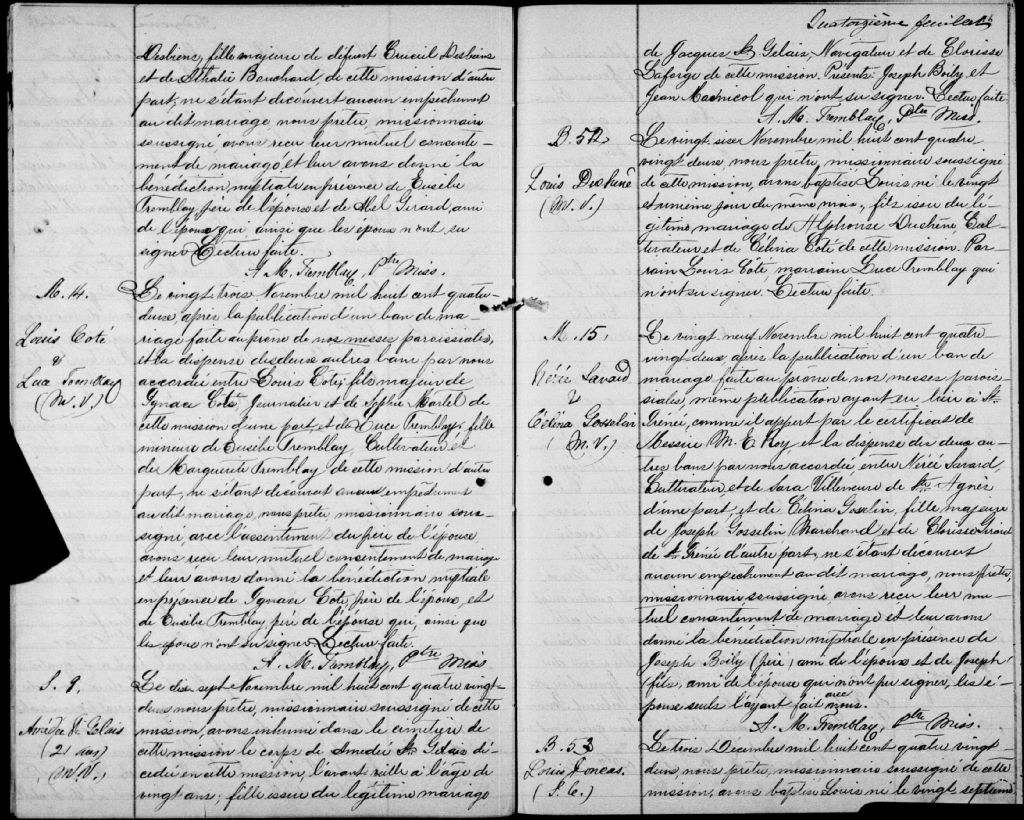 Desbiens, fille majeure de défunt Crueil Desbiens
et de Athalie Bouchard de cette mission d'autre
part, ne s'étant découvert aucun empêchement
au dit mariage, nous prêtre, missionnaire
soussigné avons reçu leur mutuel consente-
ment de mariage, et leur avons donné la
bénédiction nuptiale en présence de Eusèbe
Tremblay, père de l'épouse et de Abel Girard, ami
de l'époux qui, ainsi que les epoux n'ont su
signer. Lecture faite.
A. M. Tremblay, Ptre Miss.
M. 14.
Louis Coté
&
Luce Tremblay
(M. V.)
Le vingt trois Novembre mil huit cent quatre-
deux, après la publication d'un ban de ma-
riage faite au prône de nos messes paroissiales,
et la dispense des deux autres bans par nous
accordée entre Louis Coté, fils majeur de
Ignace Coté, Journalier et de Sophie Martel de
cette mission d'une part et de Luce Tremblay, fille
mineure de Eusèbe Tremblay, Cultivateur et
de Marguerite Tremblay de cette mission d'autre
part, ne s'étant découvert aucun empêchement
au dit mariage, nous prêtre, missionnaire sous-
signé avec l'assentiment du père de l'épouse,
avons reçu leur mutuel consentement de mariage
et leur avons donné la bénédiction nuptiale
en présence de Ignace Coté, père de l'époux, et
de Eusèbe Tremblay, père de l'épouse qui, ainsi que
les epoux n'ont su signer. Lecture faite.
A. M. Tremblay, Ptre Miss.
S. 9.
Amédée St. Gelais
(21 ans)
(M. V.)
Le dix sept Novembre mil huit cent quatre vingt-
deux nous prêtre, missionnaire soussigné de cette
mission, avons inhumé dans le cimetière de
cette mission le corps de Amedée St. Gelais dé-
cedé en cette mission, l'avant veille à l'âge de
vingt ans; fille issue du légitime mariage
Quatorzième feuillet
de Jacques St. Gelais, Navigateur et de Clorisse
Laforge de cette mission. Présents: Joseph Boily et
Jean Macnicol qui n'ont su signer. Lecture faite.
A. M. Tremblay, Ptre Miss.
B. 52
Louis Duchene
(M. V.)
Le vingt-sixe Novembre mil huit cent quatre
vingt deux, nous prêtre, missionnaire soussigné
de cette mission, avons baptisé Louis né le vingt
et unième jour du même mois, fils issu du lé-
gitime mariage de Alphonse Duchène, Cul-
tivateur et de Célina Coté de cette mission. Par-
rain Louis Coté marraine Luce Tremblay qui
n'ont su signer. Lecture faite.
M. 15.
Nérée Savard
&
Célina Gosselin
(M. V.)
Le vingt neuf Novembre mil huit cent quatre
vingt deux, après la publication d'un ban de
mariage faite au prône de nos messes parois-
siales, même publication ayant eu lieu à St.
Irénée, comme il appert par le certificat de
Messire M. E. Roy, et la dispense des deux au-
tres bans par nous accordée, entre Nérée Savard,
Cultivateur, et de Sara Villeneuve de Ste Agnès
d'une part, et de Célina Gosselin, fille majeure
de Joseph Gosselin Marchand et de Clorisse Girard
de St. Irénée d'autre part, ne s'étant découvert
aucun empechement au dit mariage, nous prêtre,
missionnaire soussigné, avons reçu leur mu-
tuel consentement de mariage et leur avons
donné la bénédiction nuptiale en présence de
Joseph Boily (père) ami de l'époux et de Joseph
(fils, ami de l'épouse qui n'ont pu signer, les é-
poux seuls l'ayant fait avec nous.
A. M. Tremblay, Ptre Miss.
B. 53
Louis Joncas.
(S. C.)
Le trois Décembre mil huit cent quatre vingt
deux, nous prêtre, missionnaire soussigné de cette
mission, avons baptisé Louis né le vingt septième